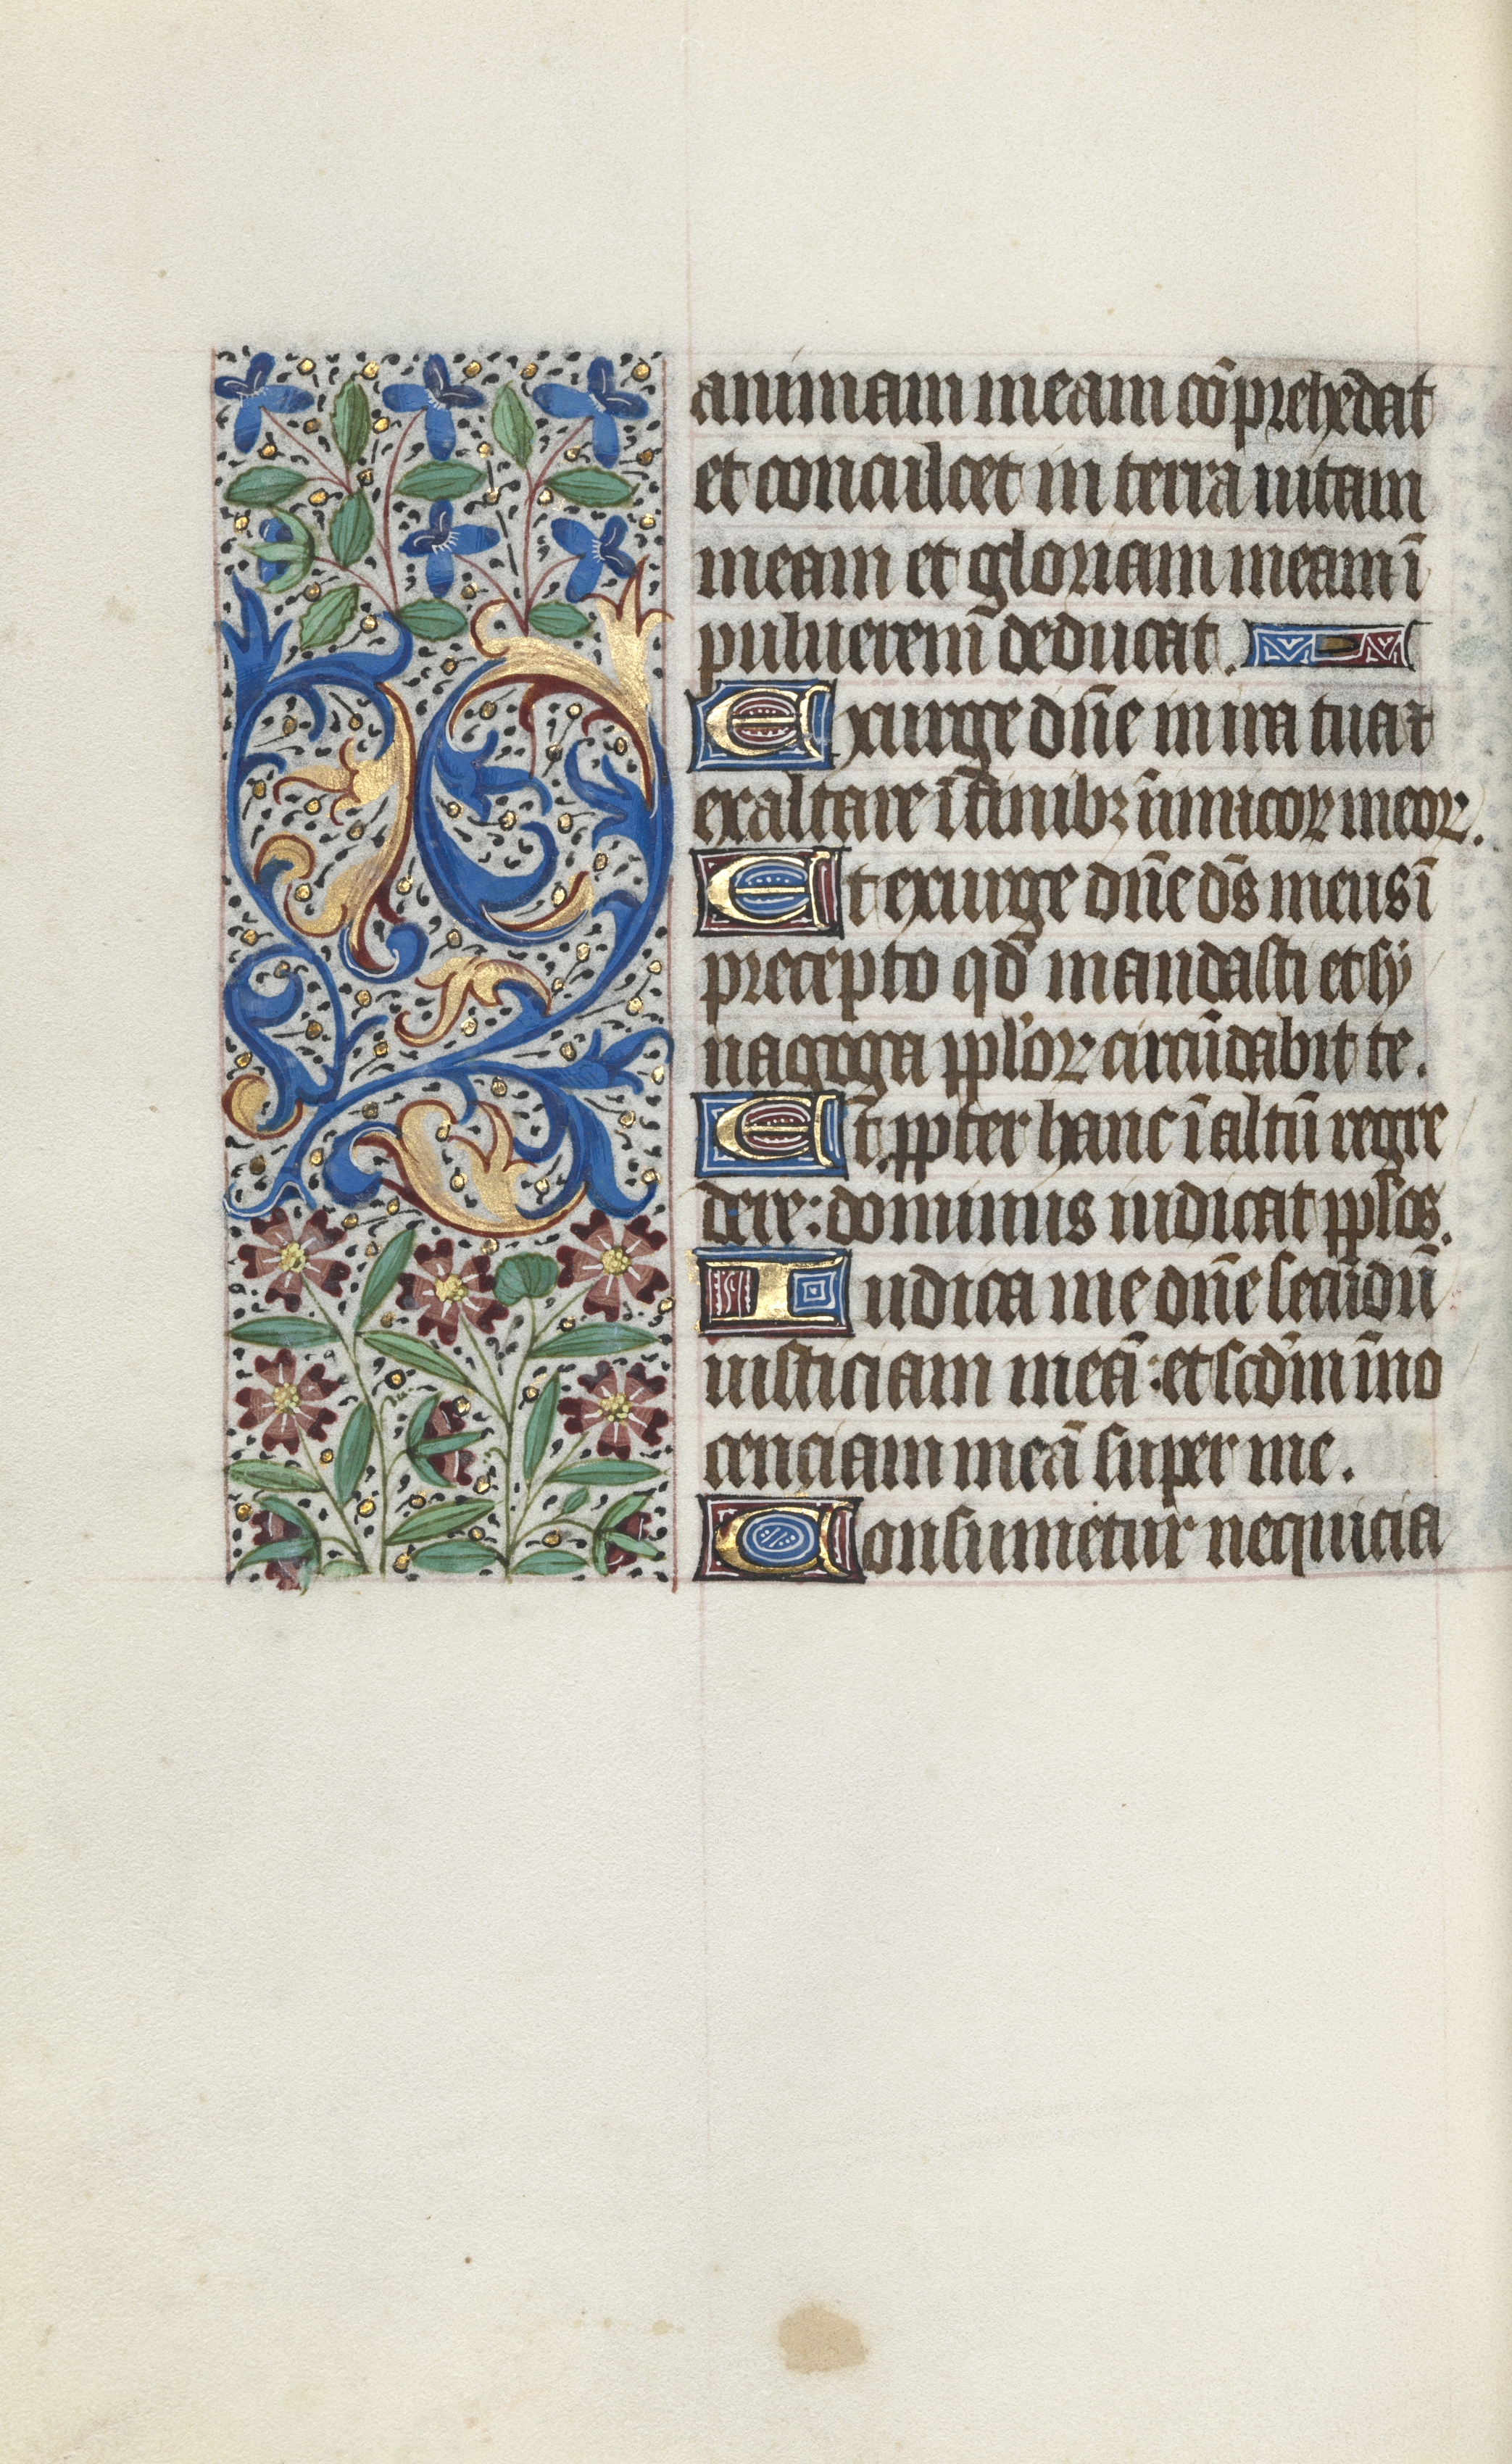 animam meam cōprehēdat
et conculcet in terra uitam
meam et gloriam meam ī
puluerem deducat.
Exurge dn̄e in ira tua ⁊
exaltare ī finibꝫ inimicoꝝ meoꝝ.
Et exurge dn̄e ds̄ meus ī
precepto qd̄ mandasti et sy
nagoga pp̄loꝝ circūdabit te.
Et ꝓpter hanc ī altū regre
dere: dominus iudicat pp̄los.
Iudica me dn̄e secūdū
iusticiam meā: et scdm̄ īno
cenciam meā super me.
Consumetur nequicia